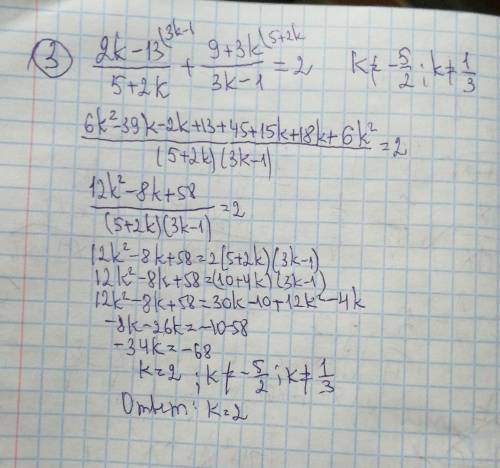 ③ (2k-13)/(5+2k) (3k-1 + (9+3k)/(3k-1) (5+2k = 2 k≠-5/2; k≠1/3
(6k²-39k-2k+13+45+15k+18k+6k²)/((5+2k)(3k-1)) =2
(12k²-8k+58)/((5+2k)(3k-1)) =2
12k²-8k+58=2(5+2k)(3k-1)
12k²-8k+58=(10+4k)(3k-1)
12k²-8k+58=30k-10+12k²-4k
-8k-26k=-10-58
-34k=-68
k=2 ; k≠-5/2; k≠1/3
Ответ: k=2